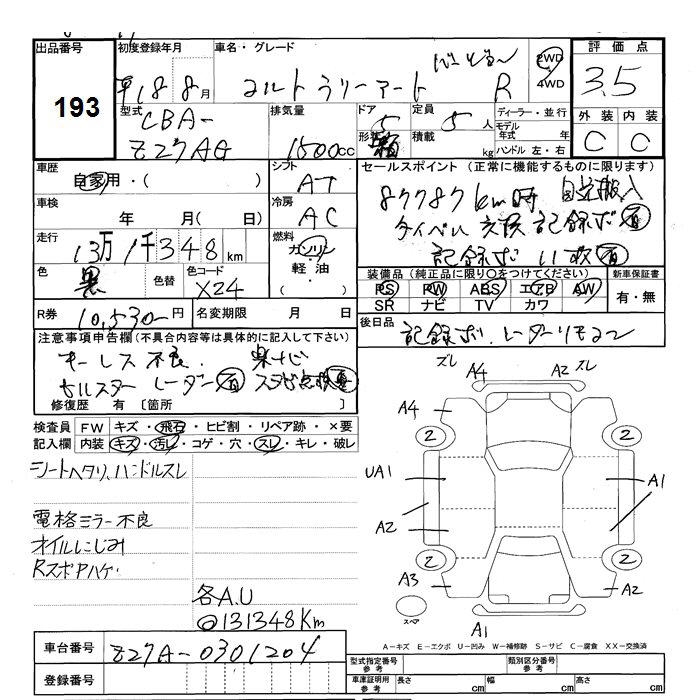 出品番号 初度登録年月 車名・グレード 評価点
193
平18 8月 コルト ラリーアート R 2WD 4WD 3.5
型式 CBA-Z27AG 排気量 1500cc ドア 5 定員 5人 ディーラー・並行
形状 箱 積載 kg モデル年式 年 ハンドル 左・右
外装 内装
C C
車歴 自家用・( ) シフト AT
セールスポイント(正常に機能するものに限ります)
87787km時
タイベル 交換 記録ボ 有
記録ボ い 枚 有
車検 年 月( 日) 冷房 AC
走行 13万1千348km 燃料 ガソリン 軽油・
色 黒 色替 色コード X24
装備品(純正品に限り○をつけてください) 新車保証書
PS PW ABS エアB AW 有・無
SR ナビ TV カワ
R券 10,530円 名変期限 月 日
後日品 記録ボ. レーダーリモコン
注意事項申告欄(不具合内容等は具体的に記入して下さい)
キーレス不良. 楽ナビ
セルスター レーダー 有
修復歴 有 [箇所 ]
検査員 FW キズ・飛石・ヒビ割・リペア跡・×要
記入欄 内装 キズ・汚レ・コゲ・穴・スレ・キレ・破レ
シートヘタリ、ハンドルスレ
電格ミラー不良
オイルにじみ
RスポアハゲÂ
各A.U
◎131348Km
ズレ A4 A2 ズレ
A4
2 2
UA1 A1
A2
2 2
A3 A2
スペア
A1
A-キズ E-エクボ U-凹み W-補修跡 S-サビ C-腐食 XX-交換済
車台番号 Z27A-0301204
登録番号
型式指定番号 参考 類別区分番号 参考
車庫証明用 参考 長さ cm 幅 cm 高さ cm